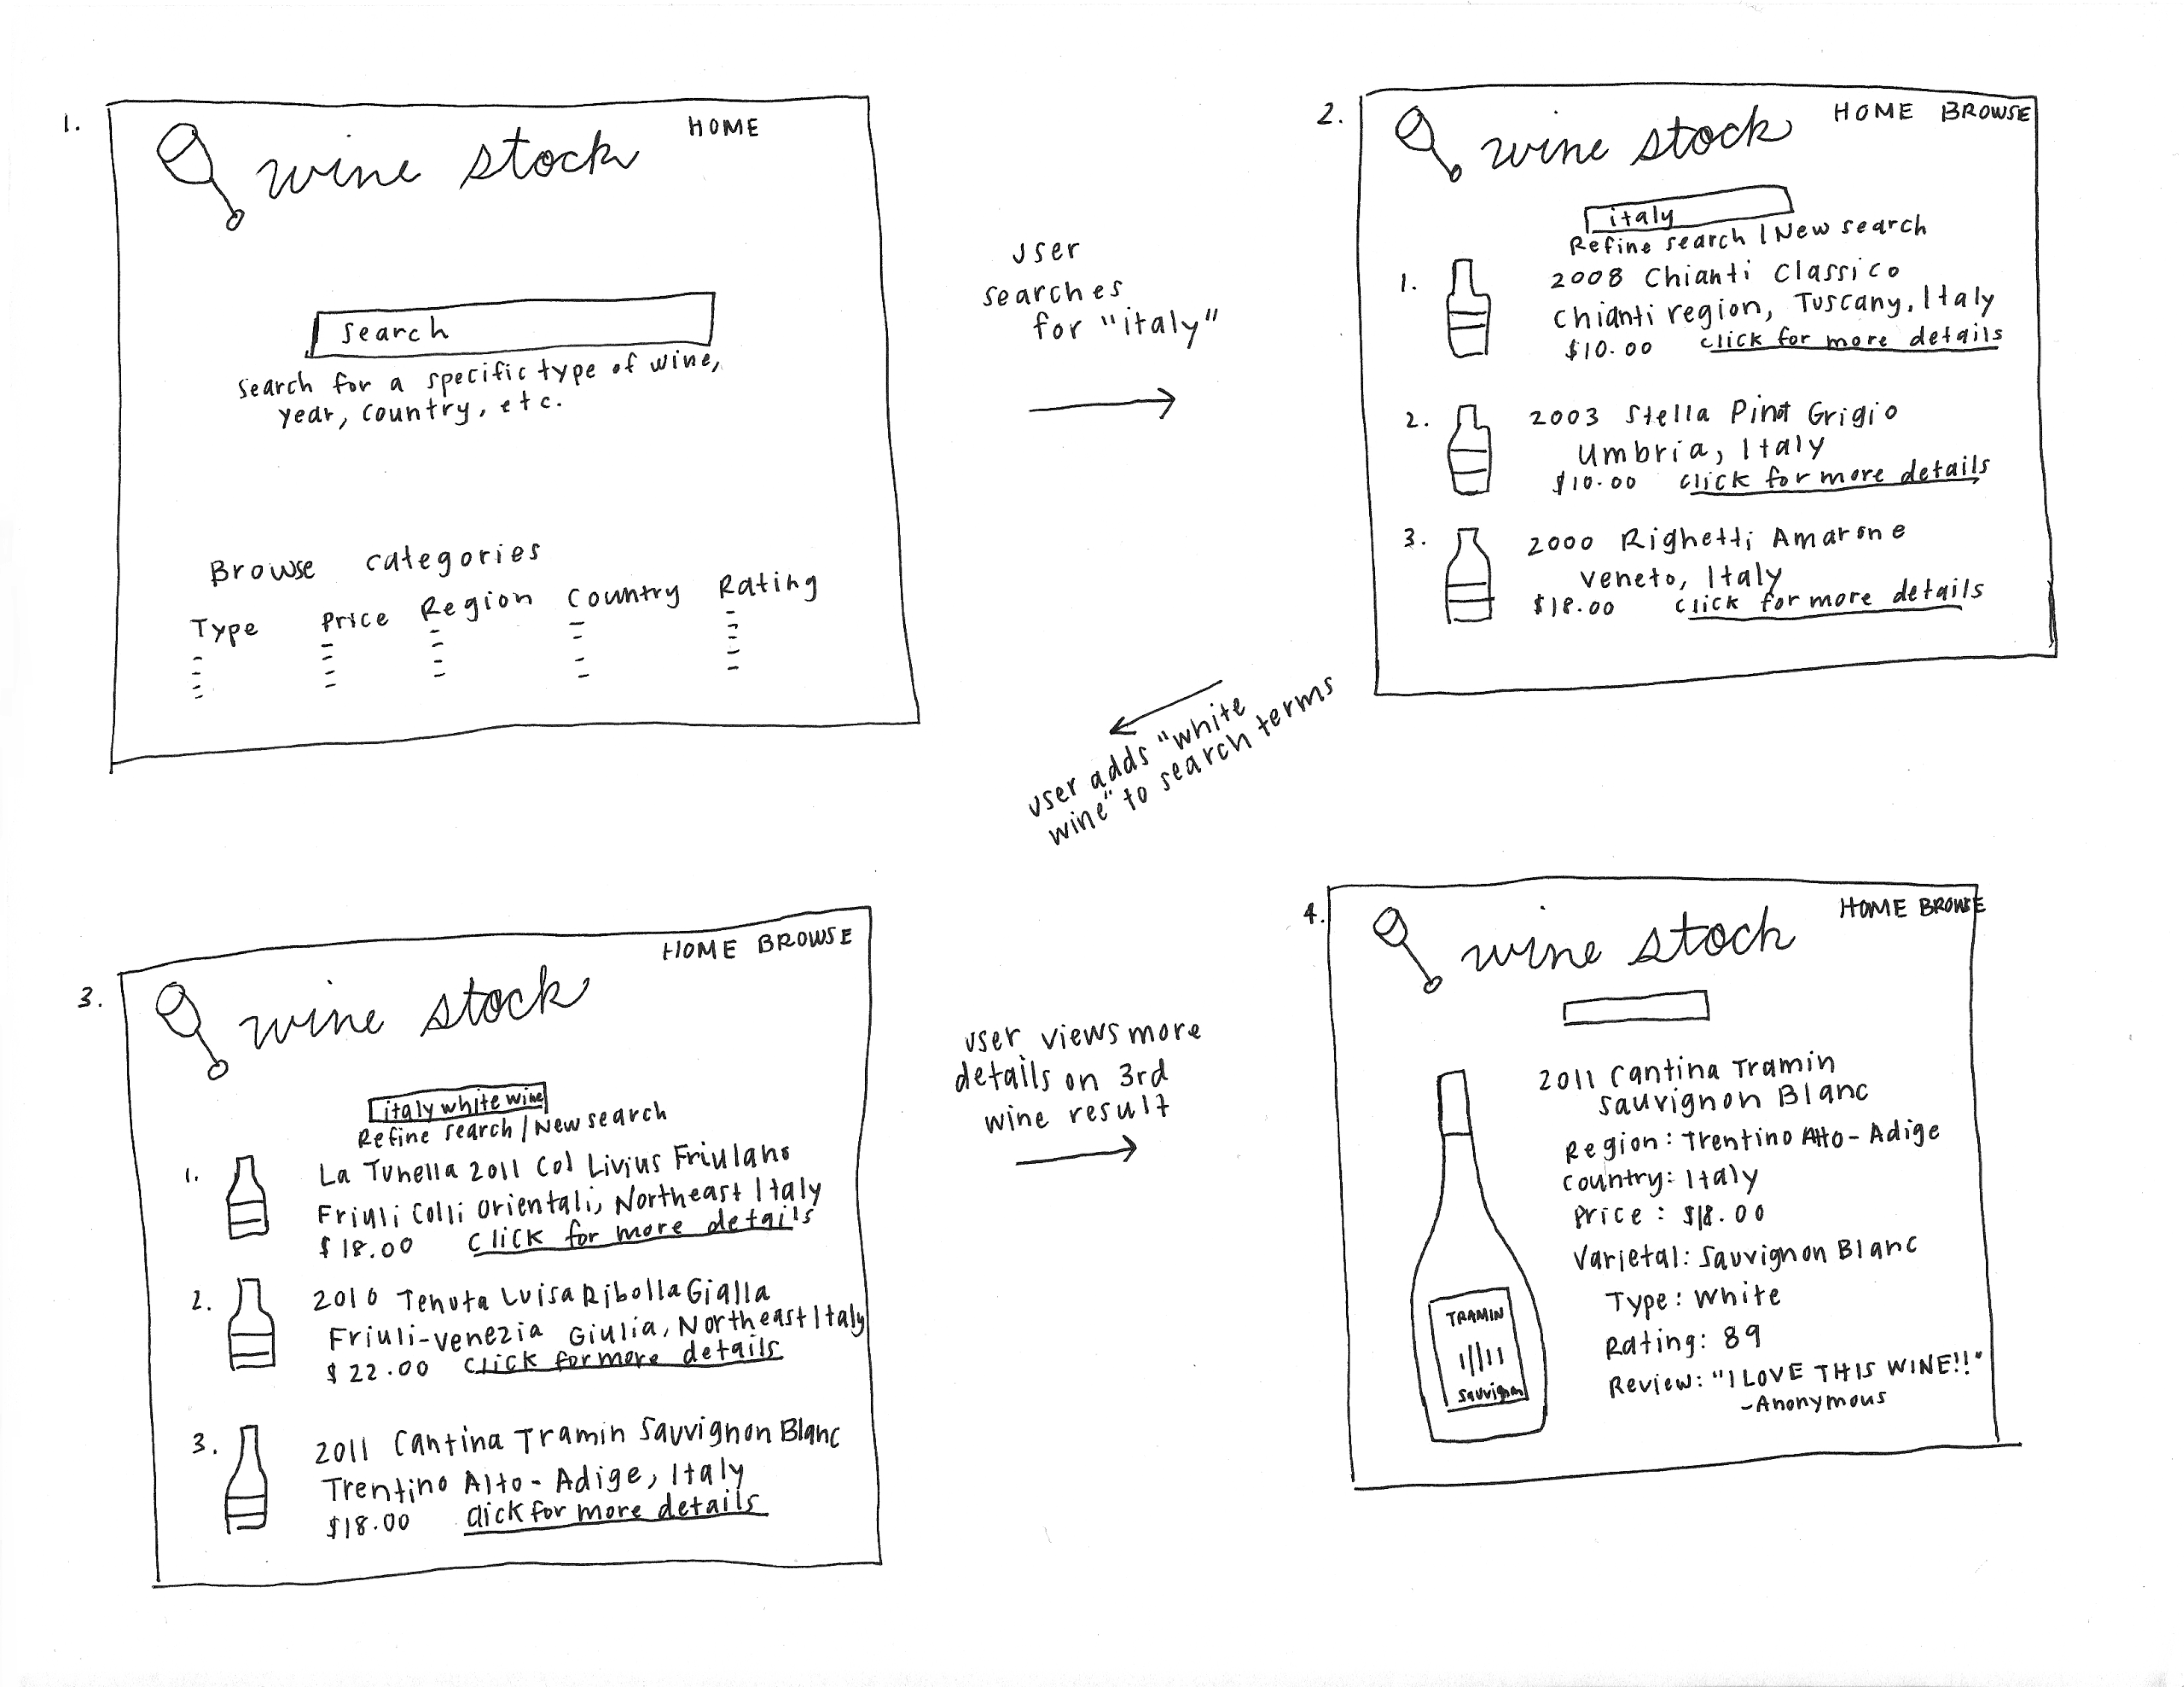 1.
wine stock
HOME
search
search for a specific type of wine,
year, country, etc.
Browse categories
Type Price Region Country Rating
user
searches
for "italy"
2.
wine stock
HOME BROWSE
italy
Refine search | New search
1. 2008 Chianti Classico
Chianti region, Tuscany, Italy
$10.00 click for more details
2. 2003 Stella Pinot Grigio
Umbria, Italy
$10.00 click for more details
3. 2000 Righetti Amarone
Veneto, Italy
$18.00 click for more details
user adds "white
wine" to search terms
3.
HOME BROWSE
wine stock
italy white wine
Refine search / New search
1. La Tunella 2011 Col Livius Friulano
Friuli Colli Orientali, Northeast Italy
$18.00 click for more details
2. 2010 Tenuta Luisa Ribolla Gialla
Friuli-Venezia Giulia, Northeast Italy
$22.00 click for more details
3. 2011 Cantina Tramin Sauvignon Blanc
Trentino Alto-Adige, Italy
$18.00 click for more details
user views more
details on 3rd
wine result
4.
HOME BROWSE
wine stock
2011 Cantina Tramin
Sauvignon Blanc
Region: Trentino Alto-Adige
Country: Italy
Price: $18.00
Varietal: Sauvignon Blanc
Type: White
Rating: 89
Review: "I LOVE THIS WINE!!"
-Anonymous
TRAMIN
Sauvignon